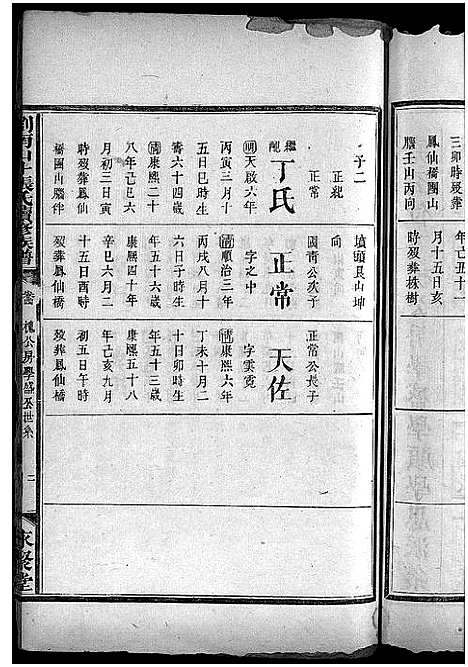 三卯時歿葬
鳳仙橋園山
騰壬山丙向
年己丑十一
月十五日亥
時歿葬株樹
子二
正紀
正常
繼配
丁氏
明天啟六年
丙寅三月十
五日巳時生
清康熙二十
八年己巳六
月初三日寅
時歿葬鳳仙
橋園山騰伴
墳頭艮山坤
向
國青公次子
正常
字之中
清順治三年
丙戌八月十
六日子時生
年五十六歲
康熙四十年
辛巳六月二
十五日酉時
歿葬鳳仙橋
正常公長子
天佐
字雲霓
清康熙六年
丁未十月二
十日卯時生
年五十三歲
康熙五十八
年己亥九月
初五日午時
歿葬鳳仙橋
張氏續修族譜
公房學盛公世系
二
永發堂